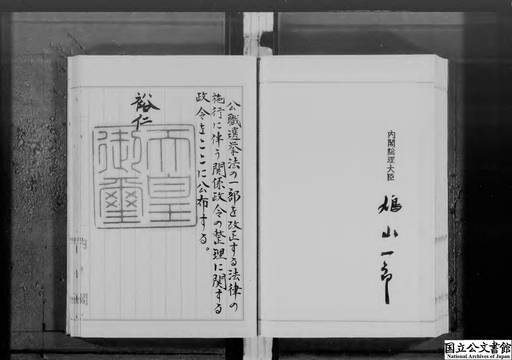 公職選挙法の一部を改正する法律の
施行に伴う関係政令の整理に関する
政令をここに公布する。
裕仁
天皇御璽
内閣総理大臣
鳩山一郎
国立公文書館
National Archives of Japan